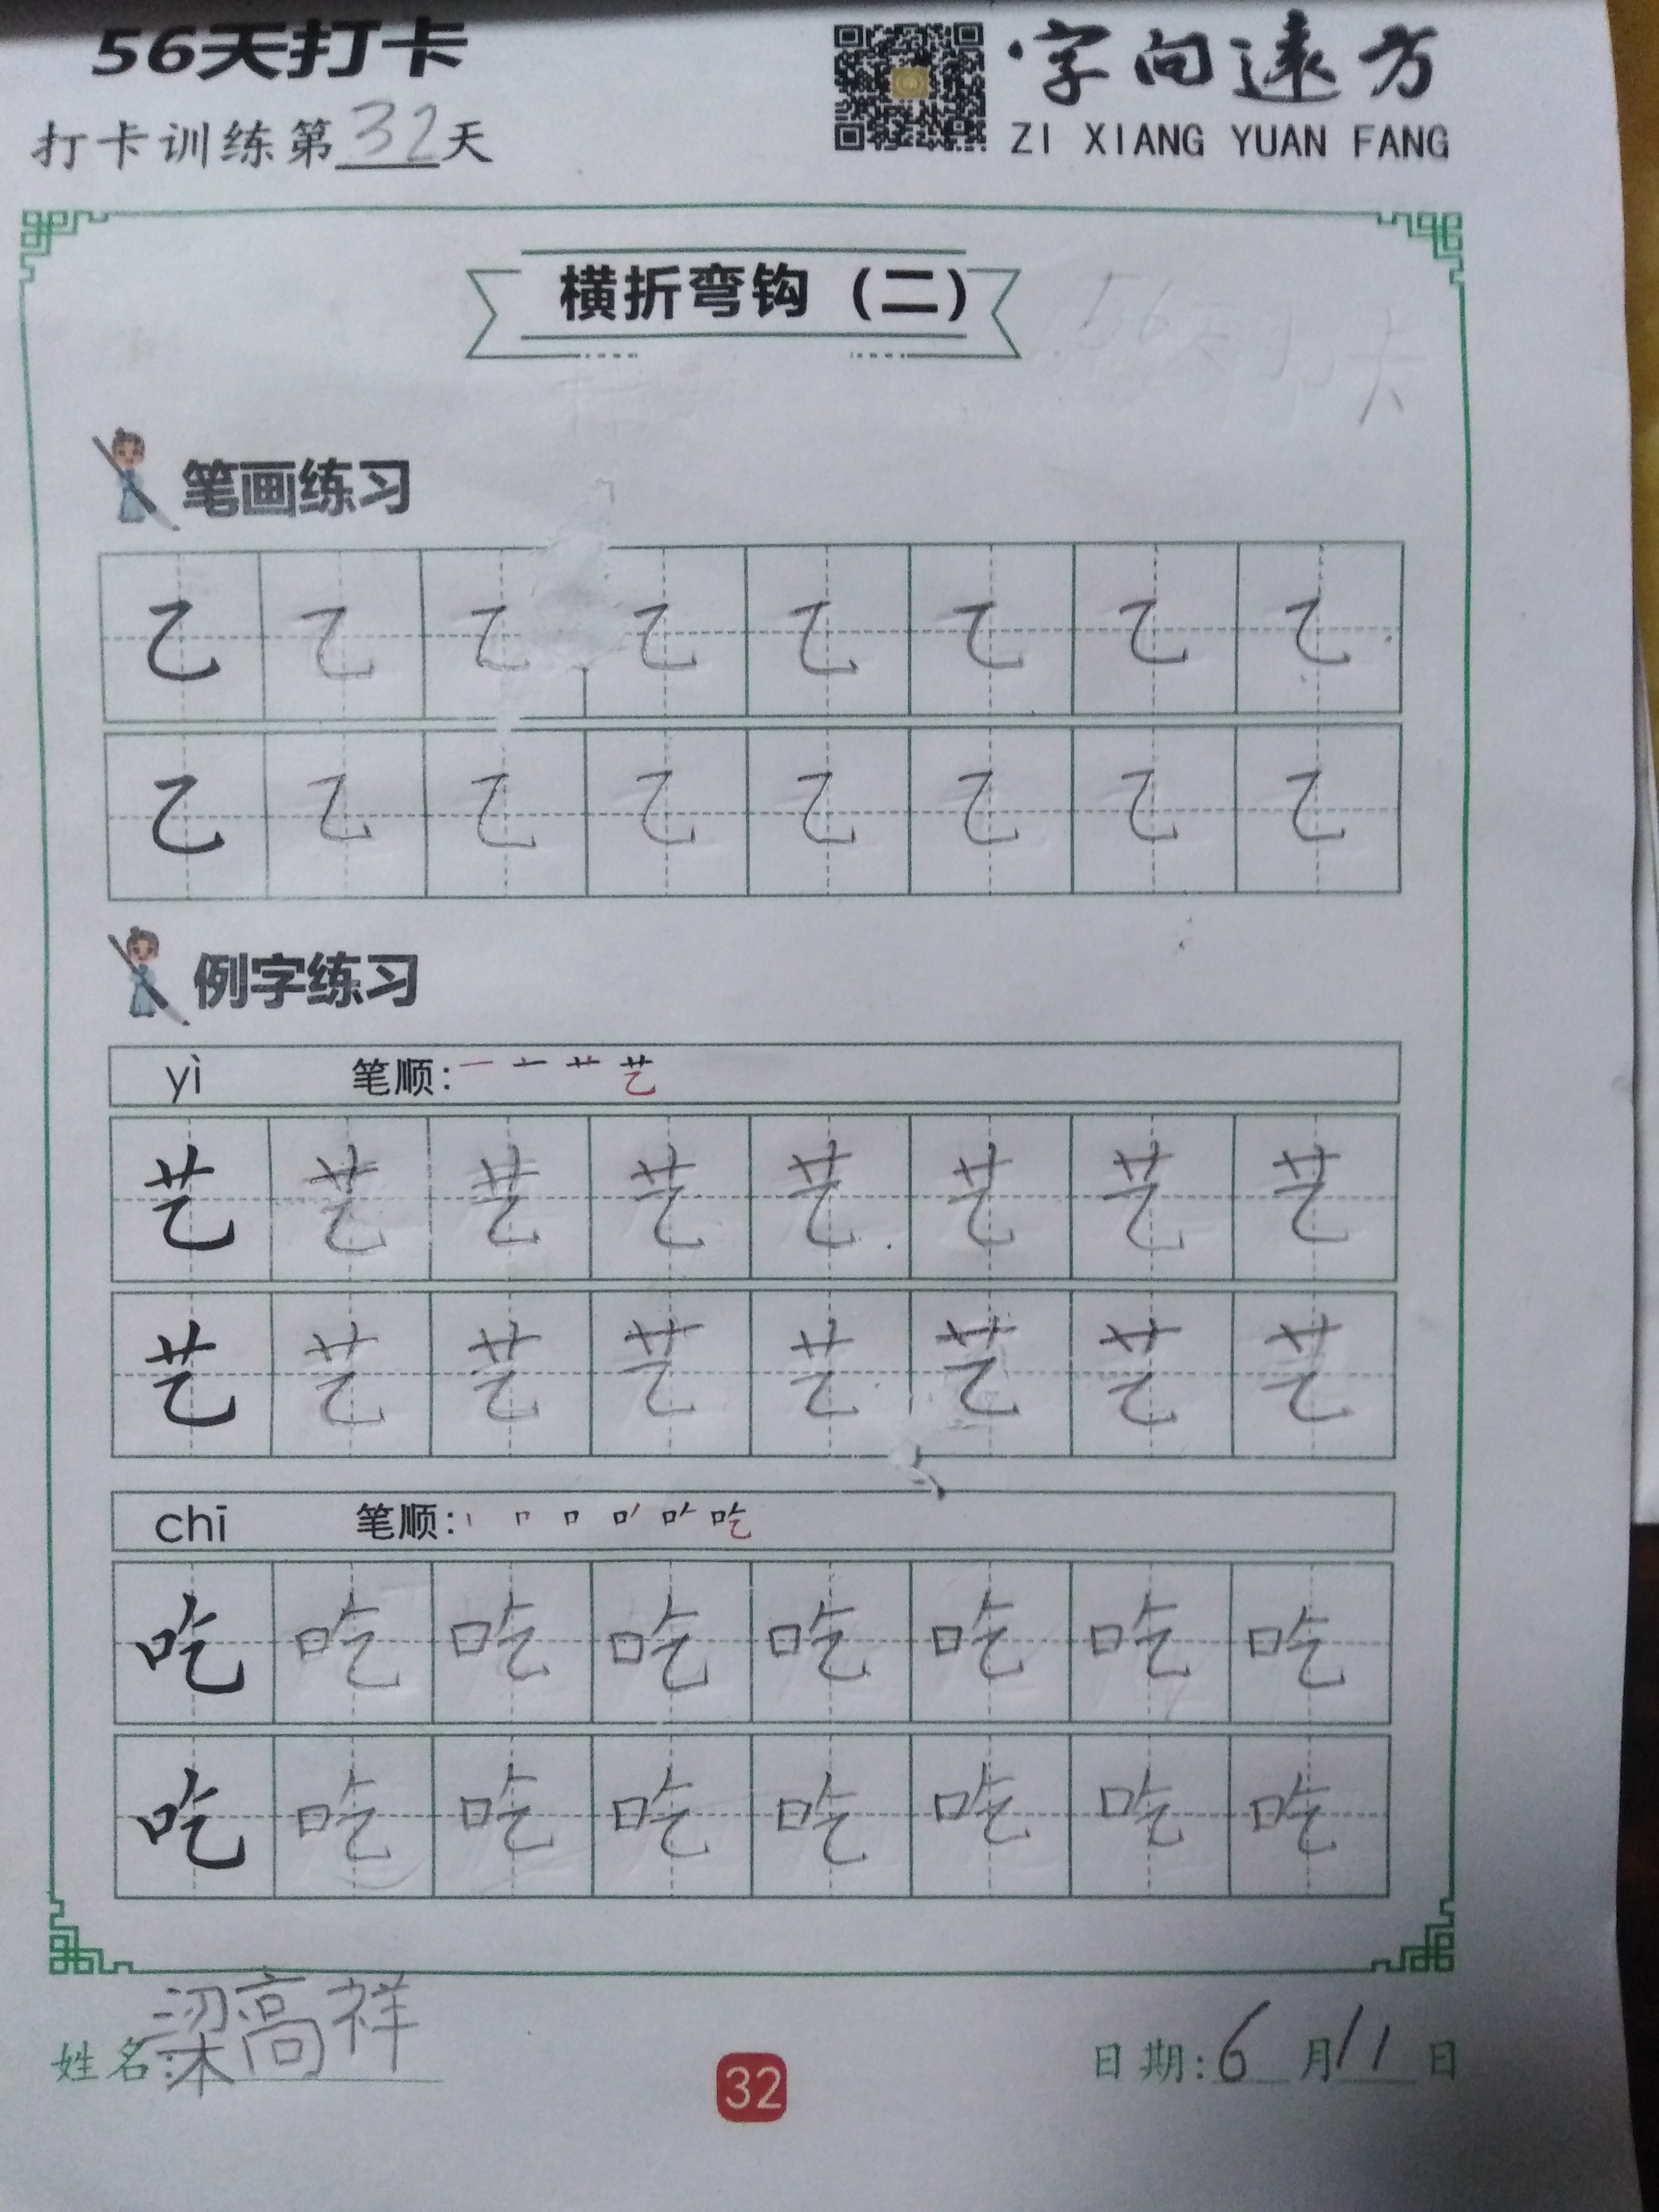 56天打卡
字向远方
打卡训练第32天
ZI XIANG YUAN FANG
横折弯钩（二）
56天打卡
笔画练习
乙 乙 乙 乙 乙 乙 乙 乙
乙 乙 乙 乙 乙 乙 乙 乙
例字练习
yì 笔顺：一 十 艹 艺
艺 艺 艺 艺 艺 艺 艺 艺
艺 艺 艺 艺 艺 艺 艺 艺
chī 笔顺：丨 口 吃
吃 吃 吃 吃 吃 吃 吃 吃
吃 吃 吃 吃 吃 吃 吃 吃
姓名：梁高祥
日期：6月11日
32